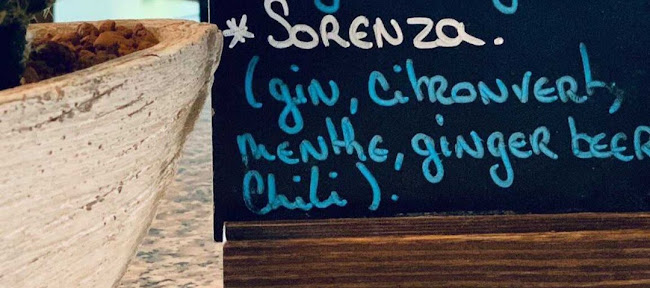 * SORENZA.
(GIN, CITRONVERT,
MENTHE, GINGER BEER
Chili).